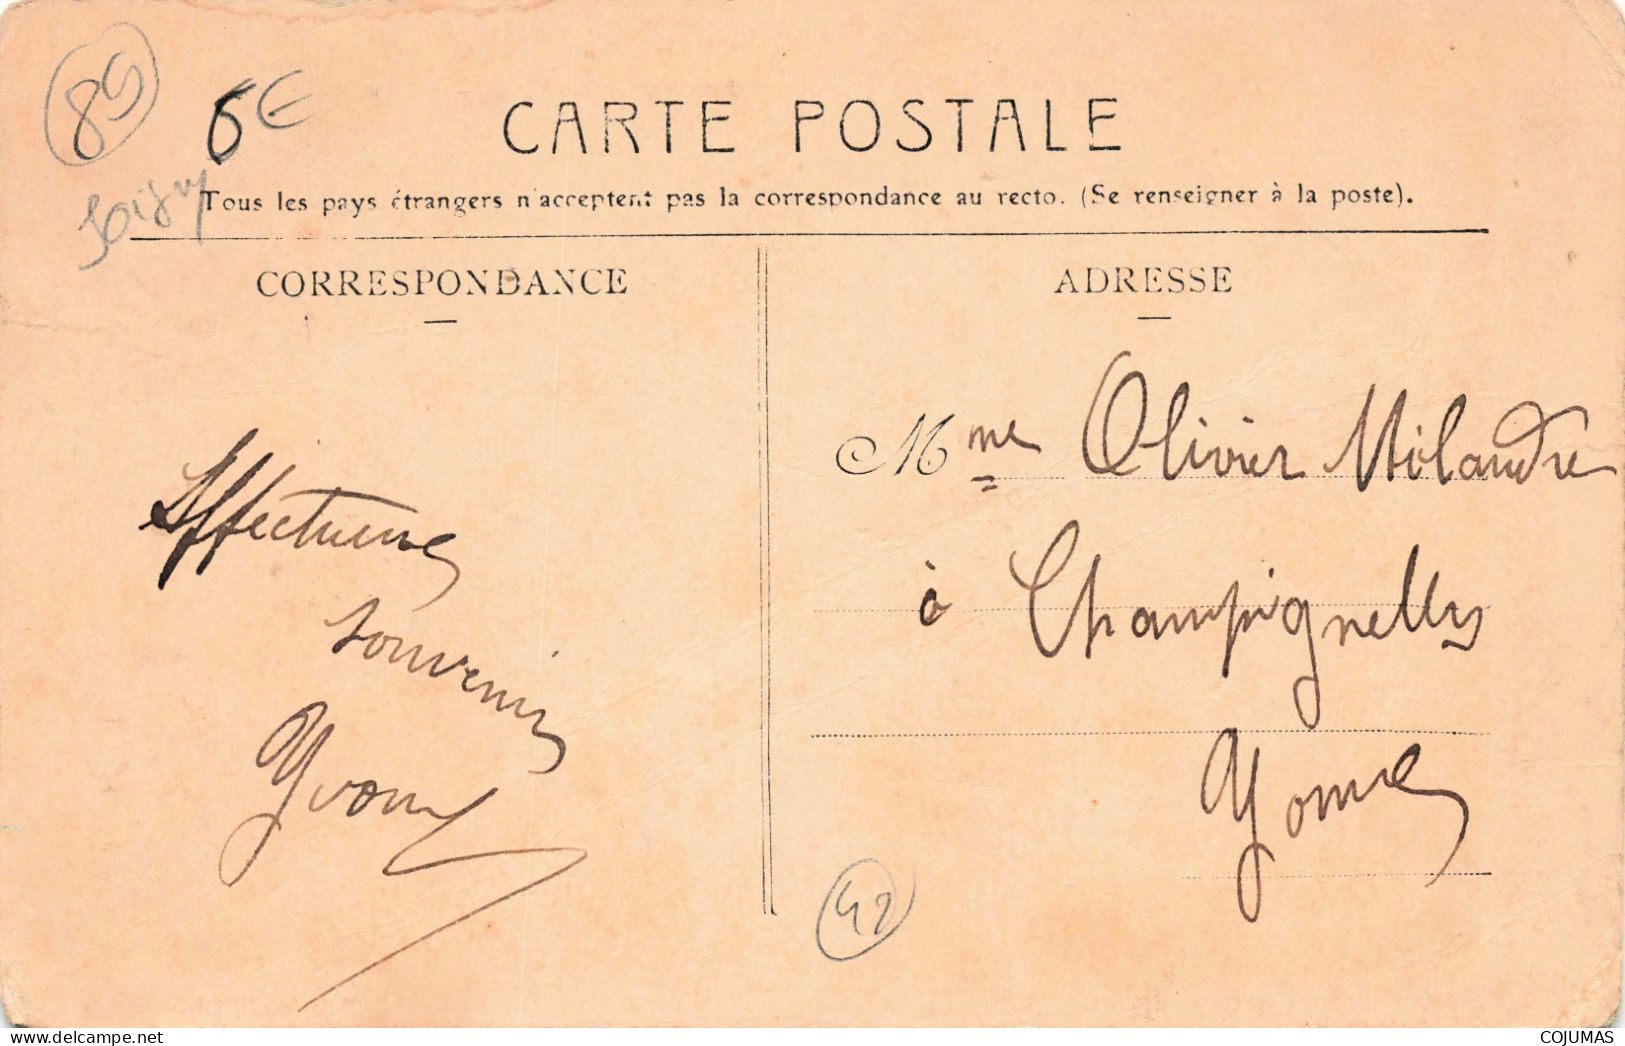 89
6€
Joigny
CARTE POSTALE
Tous les pays étrangers n'acceptent pas la correspondance au recto. (Se renseigner à la poste).
CORRESPONDANCE
ADRESSE
Affectueux
souvenir
Yvonne
Mme Olivier Milandre
à Champignelles
Yonne
42
COJUMAS